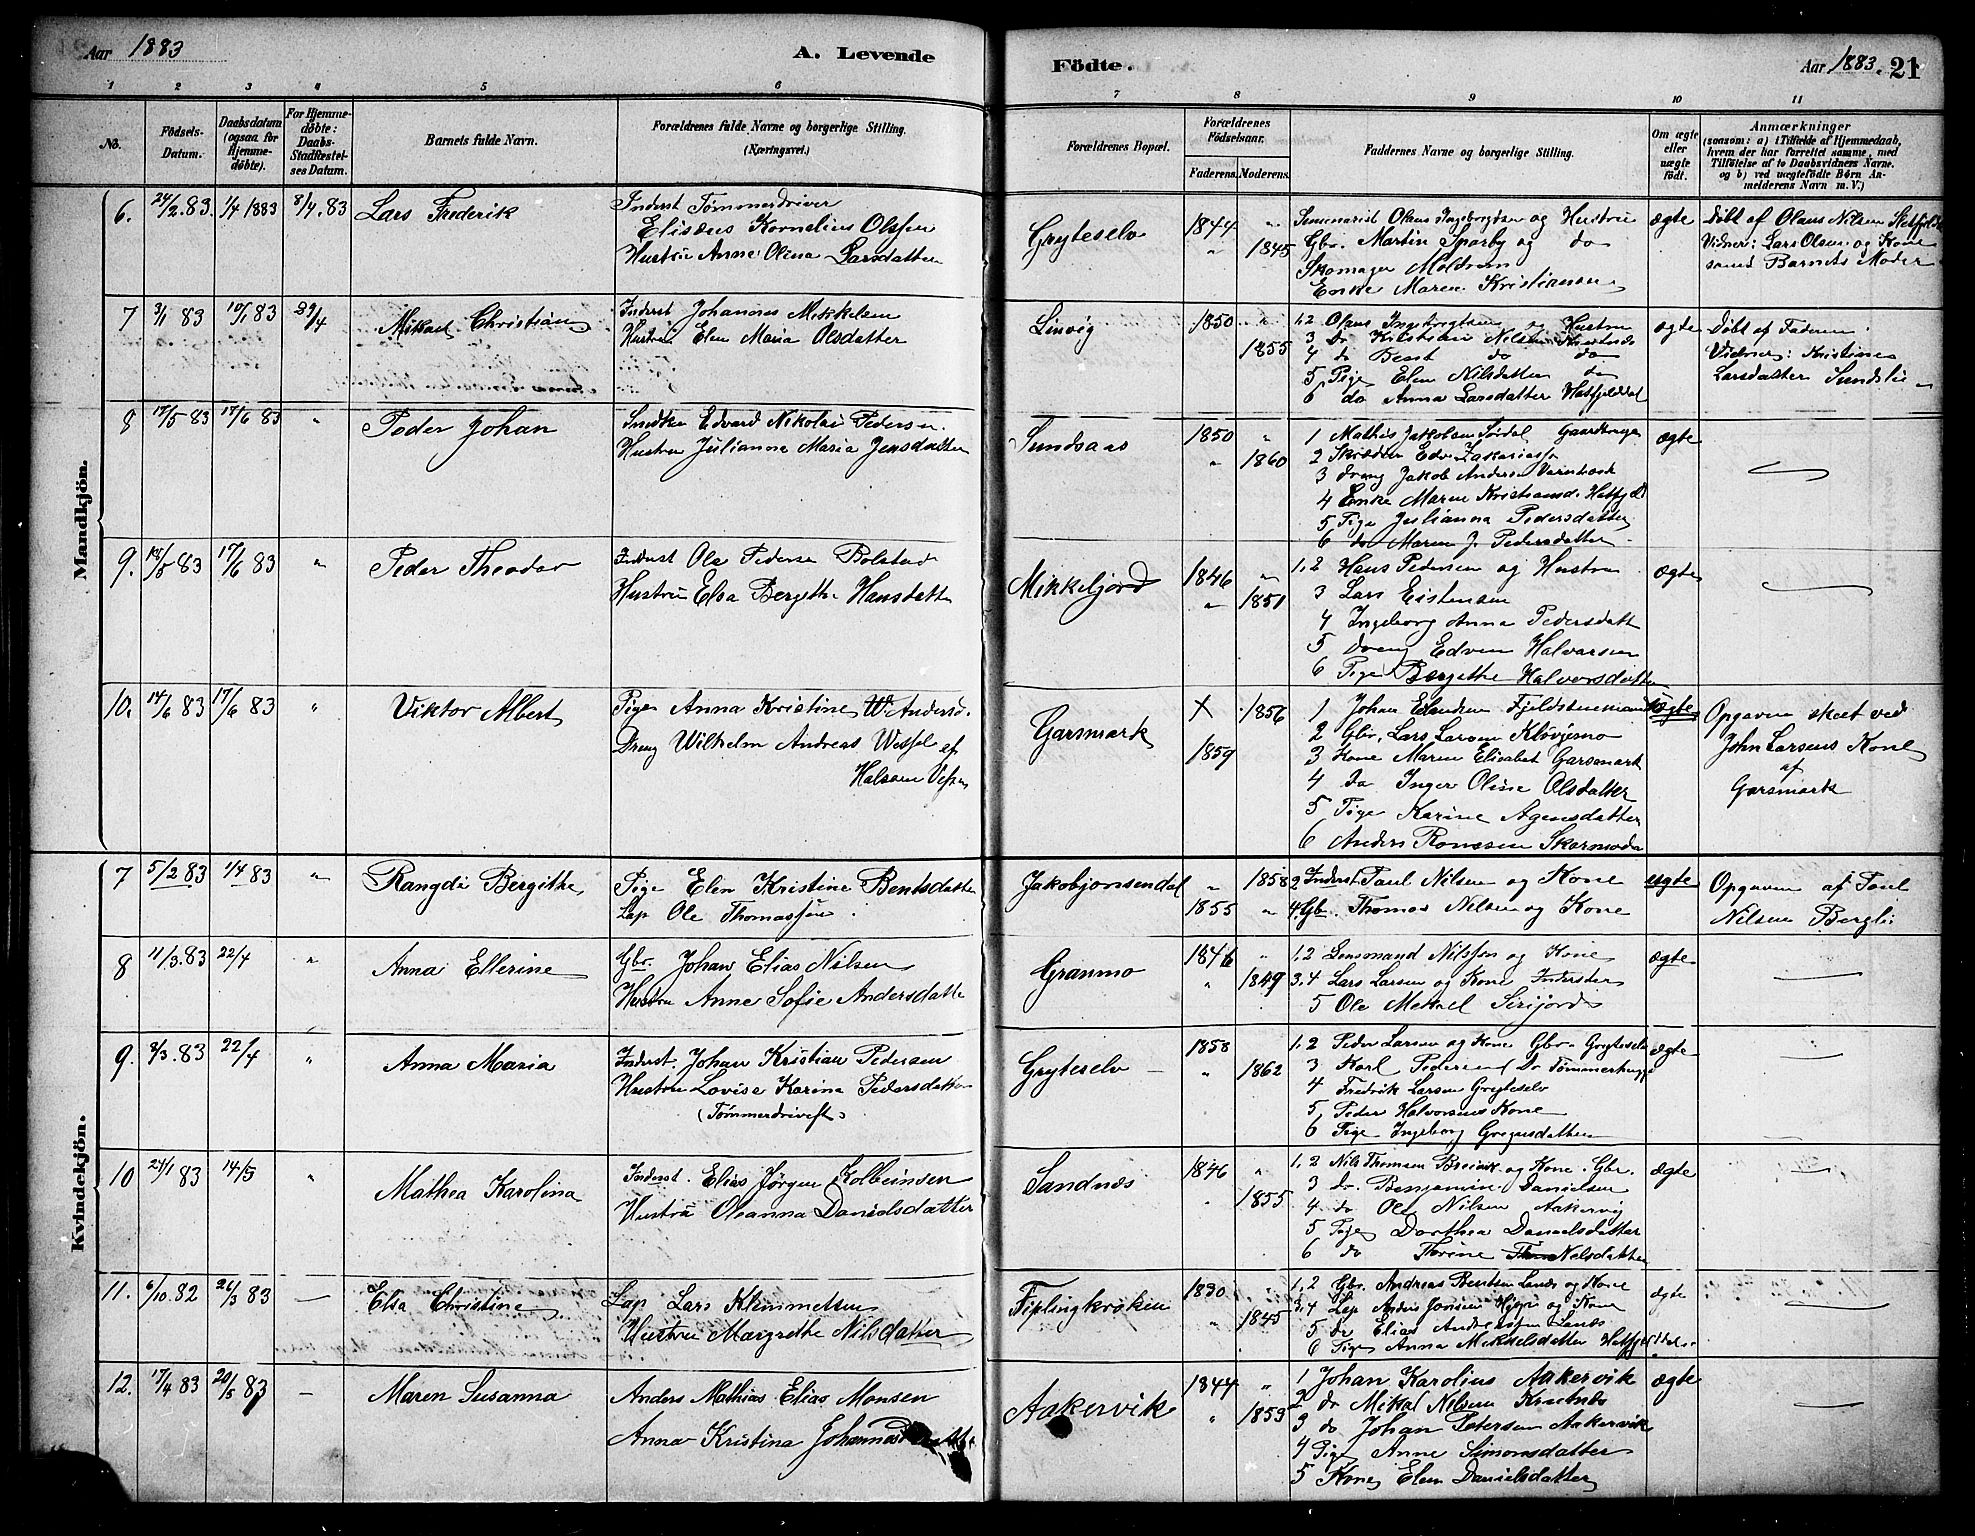 Aar 1883
A. Levende
Födte.
Aar 1883. 21
1 2 3 4 5 6 7 8 9 10 11
No.
Födsels-Datum.
Daabsdatum (ogsaa for Hjemme-döbte).
For Hjemme-döbte: Daabs-Stadfæstel-ses Datum.
Barnets fulde Navn.
Forældrenes fulde Navne og borgerlige Stilling. (Næringsvei.)
Forældrenes Bopæl.
Forældrenes Födselsaar.
Faderens. Moderens.
Faddernes Navne og borgerlige Stilling.
Om ægte eller uægte födt.
Anmærkninger
(saasom: a) i Tilfælde af Hjemmedaab, hvem der har forrettet samme, med Tilföielse af to Daabsvidners Navne. og b) ved uægtefödte Børn An-melderens Navn m. V.)
Mandkjön.
6. 24/2.83. 1/4 1883 8/4.83 Lars Frederik
Inderst Tømmerdriver
Elisæus Kornelius Olssen
Hustru Anne Olina Larsdatter
Gryteselv
1844 "
" 1845
Seminarist Olaus Ingebrigtsen og Hustru
Gbr. Martin Sparby og do
Skomager Moldrem
Enke Maren Kristiansen
ægte
Døbt af Olaus Nilsen
Vidner: Lars Olsen og Kone
samt Barnets Moder
7 3/1 83 10/1 83 29/4 Mikael Christian
Inderst Johannes Mikkelsen
Hustru Elen Maria Olsdatter
Linvig
1850 "
1855
1,2 Olaus Ingebrigtsen og Hustru
3 do Kristian Nilsen
4 do Bent do do
5 Pige Elen Nilsdatter do
6 do Anna Larsdatter Hatfjelddal
ægte
Døbt af Faderen
Vidner: Kristine
Larsdatter Sundslie
8 17/5 83 17/6 83 " Peder Johan
Snedker Edvard Nikolai Pedersen
Hustru Julianna Maria Jensdatter
Sundsaas
1850 "
" 1860
1 Mathis Jakobsen Sørdal
2 Skrædder Edv. Zakariassen
3 Dreng Jakob Andersen
4 Enke Maren Kristiansd. Hatfjd.
5 Pige Julianna Pedersdatter
6 do Maren J. Pedersdatter
ægte
9. 18/5 83 17/6 83 " Peder Theodor
Inderst Ole Pedersen Bolstad
Hustru Elsa Bergithe Hansdatter
Mikkeljord
1846 "
" 1851
1,2 Hans Pedersen og Hustru
3 Lars Eistensen
4 Ingeborg Anna Pedersdatt
5 Dreng Edvin Halvorsen
6 Pige Bergithe Halvorsdatter
ægte
10. 14/6 83 17/6 83 " Viktor Albert
Pigen Anna Kristine W. Andersd.
Dreng Wilhelm Andreas Wessel af
Halsøen Vefsn
Garsmark
X 1856
1859
1 Johan
2 Gbr. Lars Larsen Kløvjemo
3 Kone Maren Elisabet Garsmark
4 do Inger Oline Olsdatter
5 Pige Karine Agensdatter
6 Anders Skarmoda
uægte
Opgaven skeet ved
John Larsens Kone
af
Garsmark
Kvindekjön.
7 5/2 83 1/4 83 " Rangdi Bergithe
Pige Elen Kristine Bentsdatter
Lap Ole Thomassen
Jakobjonsendal
" 1858
1855 "
2 Inderst Paul Nilsen og Kone
4. Gbr. Thomas Nilsen og Kone
uægte
Opgaven af Paul
Nilsen Bergli
8 11/3.83 22/4 " Anna Ellerine
Gbr. Johan Elias Nilsen
Hustru Anne Sofie Andersdatte
Granmo
1846 "
" 1849
1,2 Nilssen og Kone
3.4 Lars Larsen og Kone Inderster
5 Ole Mekael Sirijord
ægte
9. 3/3.83 22/4 " Anna Maria
Inderst Johan Kristian Pedersen
Hustru Lovise Karina Pedersdatter
(Tømmerdrivift)
Gryteselv
1858
" 1862
1,2 Peder Larsen og Kone Gbr. Gryteselv
3 Karl Pedersen Do Tømmerhugger
4 Fredrik Larsen Gryteselv
5 Peder Halvorsens Kone
6 Pige Ingeborg Gregersdatter
ægte
10 24/1 83 14/5 " Mathea Karolina
Inderst. Elias Jørgen Kolbeinsen
Hustru Oleanna Danielsdatter
Sandnæs
1846 "
1855
1,2 Nils Thomsen Breivik og Kone. Gbr.
3 do Benjamin Danielsen
4 do Ole Nilsen Aakervig
5 Pige Dorthea Danielsdatter
6 do Thrine Nilsdatter
ægte
11. 6/10.82 26/3 83 — Elsa Christine
Lap Lars Klemmetsen
Hustru Margrethe Nilsdatter
Fiplingkroken
1830
" 1845
1,2 Gbr. Andreas Bentsen og Kone
3,4 Lap Anders Jonsen og Kone
5 do Elias Anderssen
6 Pige Anna Mikkelsdatter Hatfjelddal
ægte
12. 17/4 83 20/5 83 — Maren Susanna
Anders Mathias Elias Monsen
Anna Kristina Johannesdatter
Aakervik
1844 "
" 1853
1 Johan Karolius Aakervik
2 do Mikal Nilsen
3 do Johan Petersen Aakervik
4 Pige Anne Simonsdatter
5 Kone Elen Danielsdatter
ægte